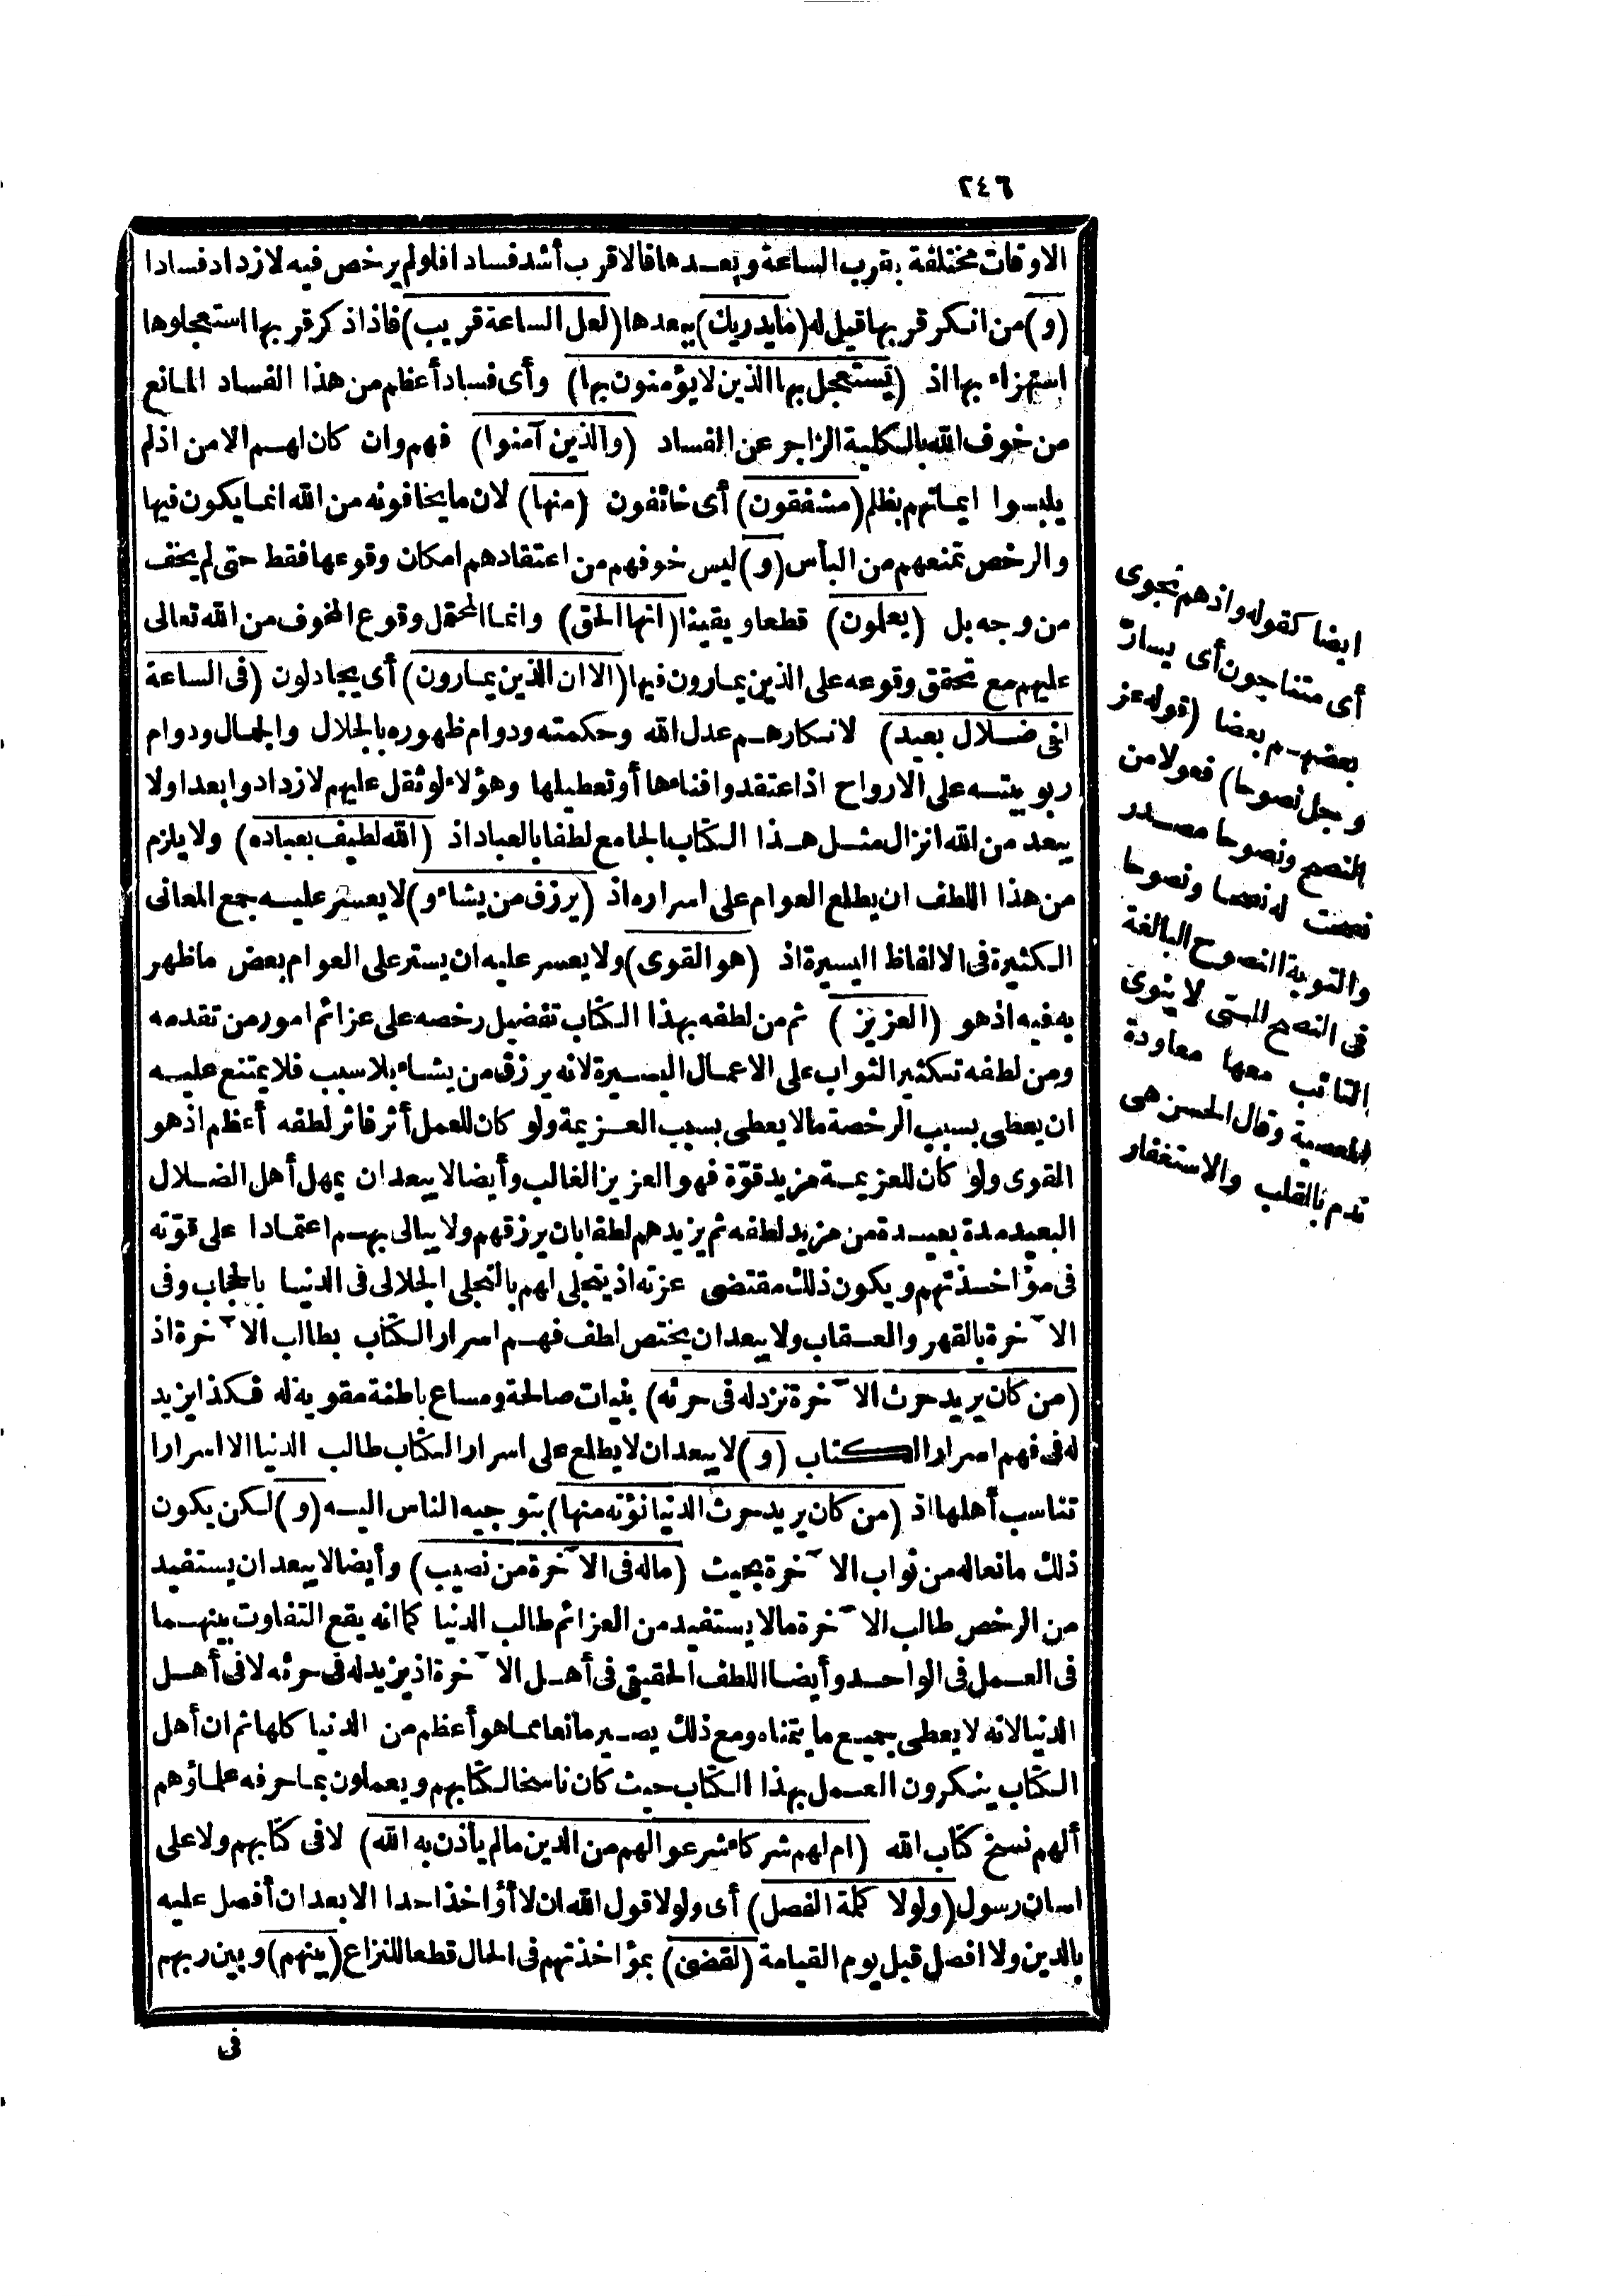 ٢٤٦
الاوقات مختلفة بقرب الساعة وبعدها فالاقرب أشد فسادا فلو لم يرخص فيه لازداد فسادا
(و) من انكر قربها قيل له (مايدريك) ببعدها (لعل الساعة قريب) فاذا ذكر قربها استعجلوها
استهزاء بها اذ (يستعجل بها الذين لايؤمنون بها) وأى فساد أعظم من هذا الفساد المانع
من خوف الله بالكلية الزاجر عن الفساد (والذين آمنوا) فهم وان كان لهم الامن اذ لم
يلبسوا ايمانهم بظلم (مشفقون) أى خائفون (منها) لان مايخافونه من الله انما يكون فيها
والرخص تمنعهم من اليأس (و) ليس خوفهم من اعتقادهم امكان وقوعها فقط حتى لم يخف
من وجه بل (يعلمون) قطعا ويقينا (انها الحق) وانما المحتمل وقوع المخوف من الله تعالى
عليهم مع تحقق وقوعه على الذين يمارون فيها (الا ان الذين يمارون) أى يجادلون (فى الساعة
لفى ضلال بعيد) لانكارهم عدل الله وحكمته ودوام ظهوره بالجلال والجمال ودوام
ربوبيته على الارواح اذا عتقدوا فناءها أو تعطيلها وهؤلاء لو ثقل عليهم لازدادوا بعدا ولا
يبعد من الله انزال مثل هذا الكتاب الجامع لطفا بالعباد اذ (الله لطيف بعباده) ولا يلزم
من هذا اللطف ان يطلع العوام على اسراره اذ (يرزق من يشاء و) لا يعسر عليه جمع المعانى
الكثيرة فى الالفاظ اليسيرة اذ (هو القوى) ولا يعسر عليه ان يستر على العوام بعض ما ظهر
به فيه اذ هو (العزيز) ثم من لطفه بهذا الكتاب تفضيل رخصه على عزائم امور من تقدمه
ومن لطفه تكثير الثواب على الاعمال اليسيرة لانه يرزق من يشاء بلا سبب فلا يمتنع عليه
ان يعطى بسبب الرخصة مالا يعطى بسبب العزيمة ولو كان للعمل أثر فاثر لطفه أعظم اذ هو
القوى ولو كان للعزيمة مزيد قوّة فهو العزيز الغالب وأيضا لا يبعد ان يمهل أهل الضلال
البعيد مدة بعيدة من مزيد لطفه ثم يزيدهم لطفا بان يرزقهم ولا يبالى بهم اعتمادا على قوّته
فى مؤاخذتهم ويكون ذلك مقتضى عزته اذ يتجلى لهم بالتجلى الجلالى فى الدنيا بالحجاب وفى
الآخرة بالقهر والعقاب ولا يبعد ان يختص لطف فهم اسرار الكتاب بطالب الآخرة اذ
(من كان يريد حرث الآخرة نزد له فى حرثه) بنيات صالحة ومساع باطنة مقوية له فكذا يزيد
له فى فهم اسرار الكتاب (و) لا يبعد ان لا يطلع على اسرار الكتاب طالب الدنيا الا اسرارا
تناسب أهلها اذ (من كان يريد حرث الدنيا نؤته منها) بتوجيه الناس اليه (و) لكن يكون
ذلك مانعا له من ثواب الآخرة بحيث (ماله فى الآخرة من نصيب) وأيضا لا يبعد ان يستفيد
من الرخص طالب الآخرة مالا يستفيد من العزائم طالب الدنيا كما انه يقع التفاوت بينهما
فى العمل فى الواحد وأيضا اللطف الحقيقى فى أهل الآخرة اذ يزيد له فى حرثه لا فى أهل
الدنيا لانه لا يعطى جميع ما يتمناه ومع ذلك يصير مانعا مما هو أعظم من الدنيا كلها ثم ان أهل
الكتاب ينكرون العمل بهذا الكتاب حيث كان ناسخا لكتابهم ويعملون بما حرفه علماؤهم
ألهم نسخ كتاب الله (ام لهم شركاء شرعوا لهم من الدين مالم يأذن به الله) لا فى كتابهم ولا على
لسان رسول (ولولا كلمة الفصل) أى ولولا قول الله ان لا أؤاخذ احدا الا بعد ان أفصل عليه
بالدين ولا افصل قبل يوم القيامة (لقضى) بمؤاخذتهم فى الحال قطعا للنزاع (بينهم) وبين ربهم
فى
ايضا كقوله واذ هم نجوى
أى متناجون أى يسارّ
بعضهم بعضا (قوله عز
وجل نصوحا) فعولا من
النصح ونصوحا مصدر
نصحت له نصحا ونصوحا
والتوبة النصوح البالغة
فى النصح التى لا ينوى
التائب معها معاودة
المعصية وقال الحسن هى
ندم بالقلب والاستغفار